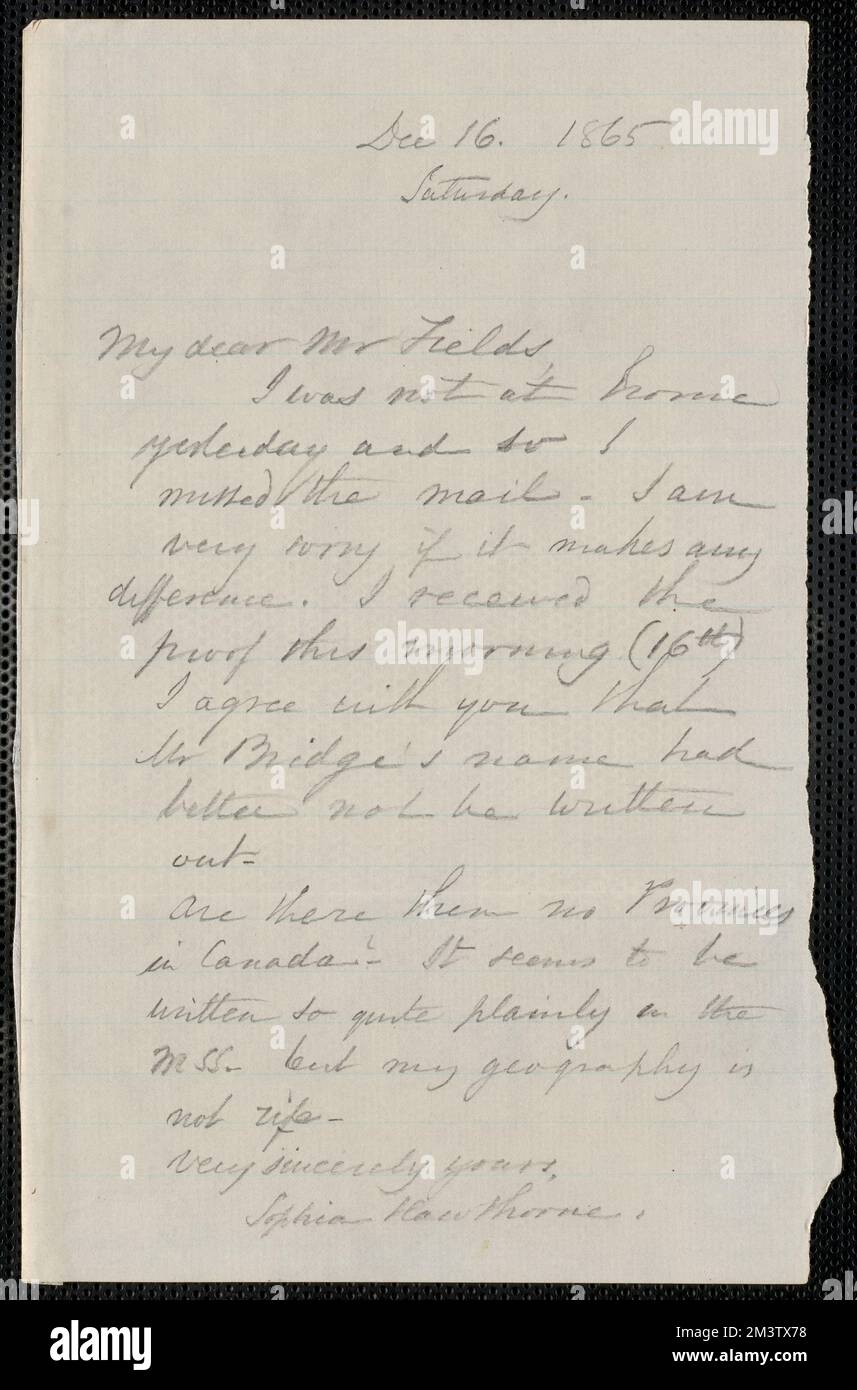 Dec 16. 1865
Saturday.
My dear Mr Fields,
I was not at home
yesterday and so I
missed the mail - I am
very sorry if it makes any
difference. I received the
proof this morning (16th)
I agree with you that
Mr Bridge's name had
better not be written
out -
Are there then no Provinces
in Canada? - It seems to be
written so quite plainly in the
MSS - but my geography is
not ripe -
Very sincerely yours,
Sophia Hawthorne.
alamy
alamy
Image ID: 2M3TX78
www.alamy.com